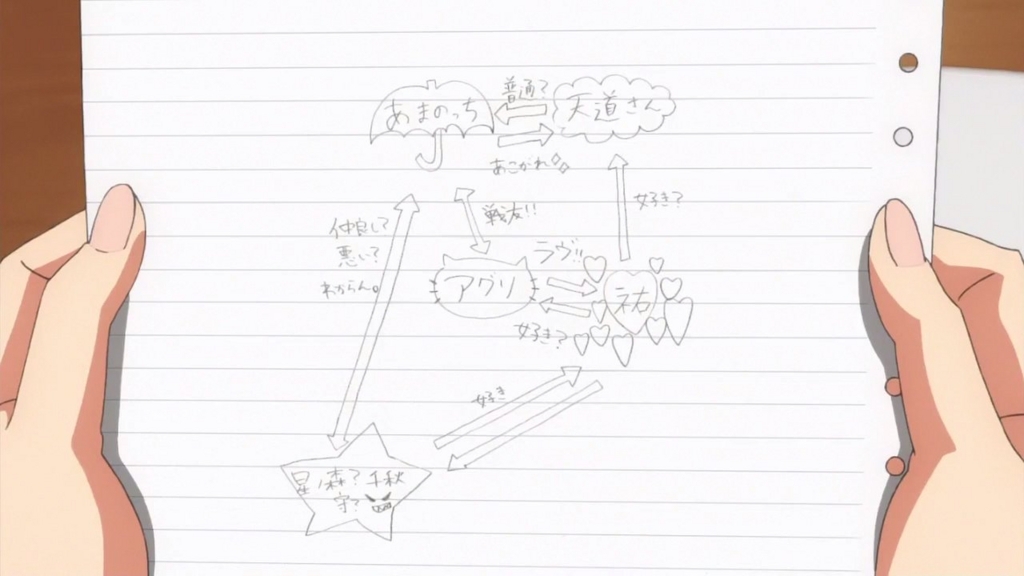 普通?
あまのっち
天道さん
あこがれ
好き?
仲良し?
悪い?
わからん。
戦友!!
ラヴ!!
アグリ
祐
好き?
好き
星ノ森?千秋
守?